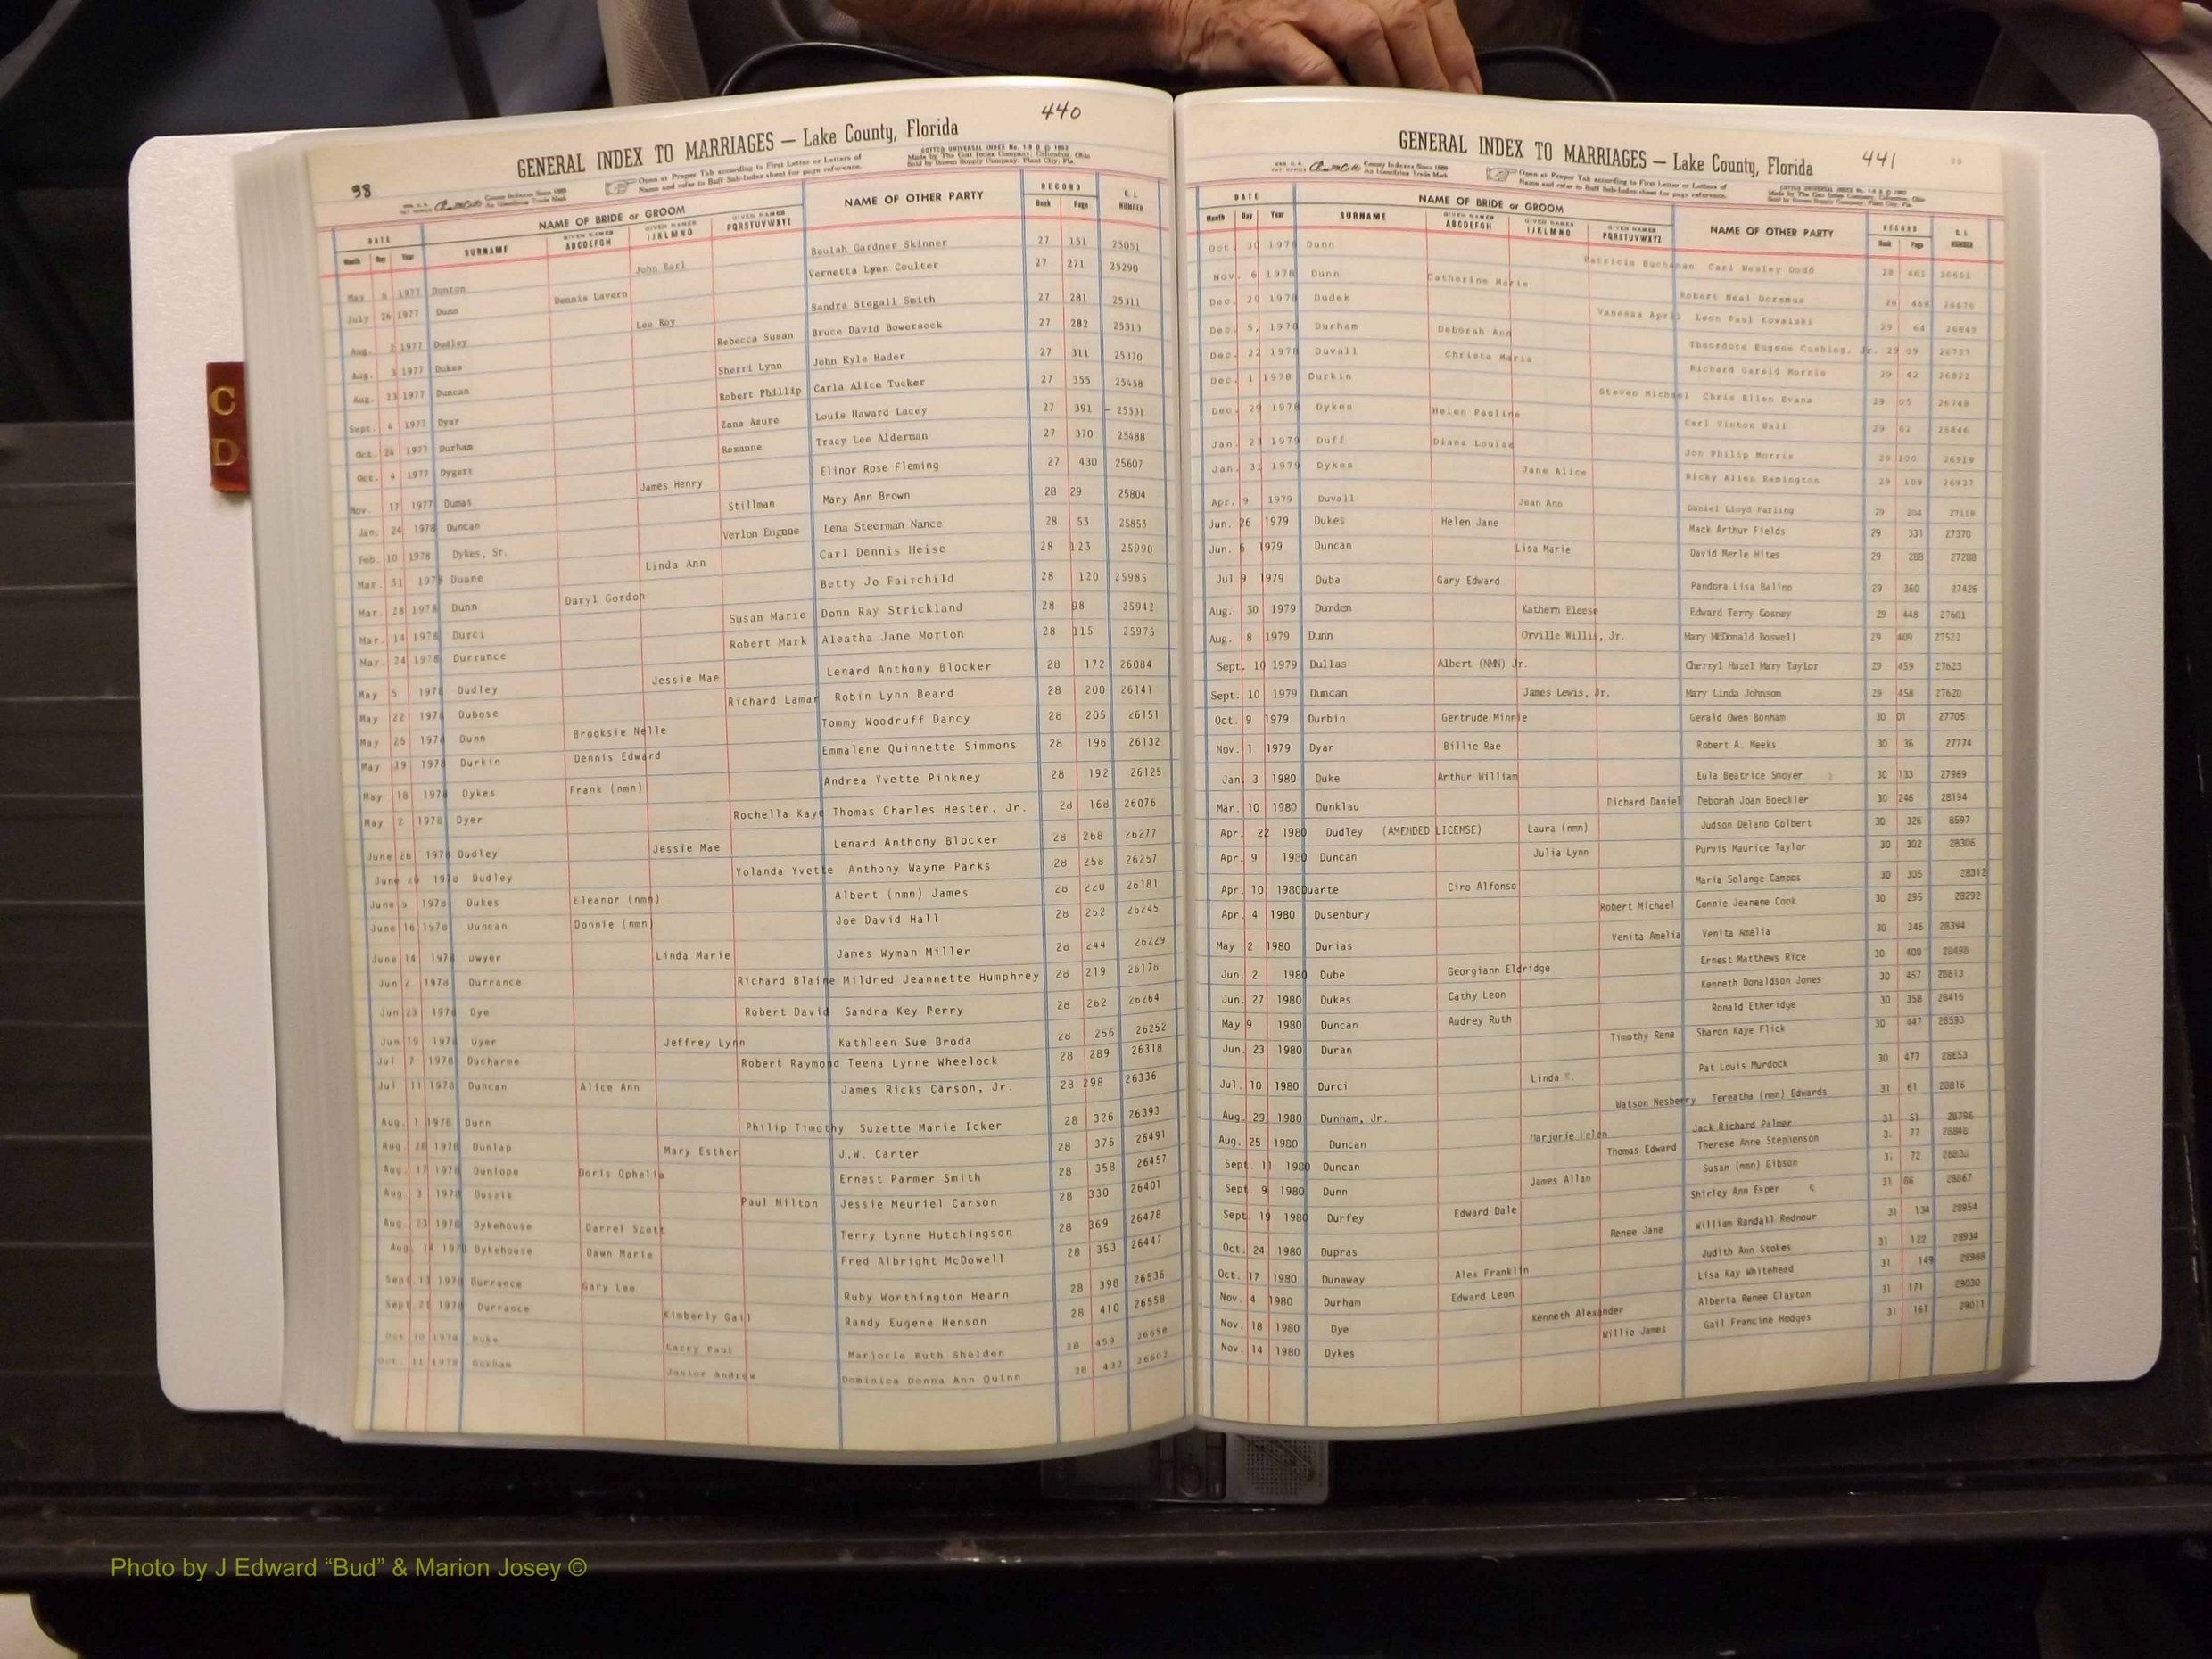 440
38
GENERAL INDEX TO MARRIAGES — Lake County, Florida
Open at Proper Tab according to First Letter or Letters of
Name and refer to Buff Sub-Index sheet for page reference.
DATE NAME OF BRIDE or GROOM NAME OF OTHER PARTY RECORD
Month Day Year SURNAME GIVEN NAMES ABCDEFGH GIVEN NAMES IJKLMNO GIVEN NAMES PQRSTUVWXYZ Book Page NUMBER
May 6 1977 Dunton John Earl Beulah Gardner Skinner 27 151 25051
July 26 1977 Dunn Dennis Lavern Vernetta Lynn Coulter 27 271 25290
Aug. 2 1977 Dudley Lee Roy Sandra Stegall Smith 27 281 25311
Aug. 3 1977 Dukes Rebecca Susan Bruce David Bowersock 27 282 25313
Aug. 23 1977 Duncan Sherri Lynn John Kyle Hader 27 311 25370
Sept. 4 1977 Dyar Robert Phillip Carla Alice Tucker 27 355 25458
Oct. 24 1977 Durham Zana Azure Louis Haward Lacey 27 391 25531
Oct. 4 1977 Dygert Roxanne Tracy Lee Alderman 27 370 25488
Nov. 17 1977 Dumas James Henry Elinor Rose Fleming 27 430 25607
Jan. 24 1978 Duncan Stillman Mary Ann Brown 28 29 25804
Feb. 10 1978 Dykes, Sr. Verlon Eugnne Lena Steerman Nance 28 53 25853
Mar. 31 1978 Duane Linda Ann Carl Dennis Heise 28 123 25990
Mar. 28 1978 Dunn Daryl Gordon Betty Jo Fairchild 28 120 25985
Mar. 14 1978 Durci Susan Marie Donn Ray Strickland 28 98 25942
Mar. 24 1978 Durrance Robert Mark Aleatha Jane Morton 28 115 25975
May 5 1978 Dudley Jessie Mae Lenard Anthony Blocker 28 172 26084
May 22 1978 Dubose Richard Lamar Robin Lynn Beard 28 200 26141
May 25 1978 Dunn Brooksie Nelle Tommy Woodruff Dancy 28 205 26151
May 19 1978 Durkin Dennis Edward Emmalene Quinnette Simmons 28 196 26132
May 18 1978 Dykes Frank (nmn) Andrea Yvette Pinkney 28 192 26125
May 2 1978 Dyer Rochella Kaye Thomas Charles Hester, Jr. 28 168 26076
June 26 1978 Dudley Jessie Mae Lenard Anthony Blocker 28 268 26277
June 20 1978 Dudley Yolanda Yvette Anthony Wayne Parks 28 258 26257
June 5 1978 Dukes Eleanor (nmn) Albert (nmn) James 28 220 26181
June 16 1978 Duncan Donnie (nmn) Joe David Hall 28 252 26245
June 14 1978 Dwyer Linda Marie James Wyman Miller 28 244 26229
Jun 2 1978 Durrance Richard Blaine Mildred Jeannette Humphrey 28 219 26178
Jun 23 1978 Dye Robert David Sandra Key Perry 28 262 26264
Jun 19 1978 Dyer Jeffrey Lynn Kathleen Sue Broda 28 256 26252
Jul 7 1978 Ducharme Robert Raymond Teena Lynne Wheelock 28 289 26318
Jul 11 1978 Duncan Alice Ann James Ricks Carson, Jr. 28 298 26336
Aug. 1 1978 Dunn Philip Timothy Suzette Marie Icker 28 326 26393
Aug. 28 1978 Dunlap Mary Esther J.W. Carter 28 375 26491
Aug. 17 1978 Dunlope Doris Ophelia Ernest Parmer Smith 28 358 26457
Aug. 3 1978 Duszik Paul Milton Jessie Meuriel Carson 28 330 26401
Aug. 23 1978 Dykehouse Darrel Scott Terry Lynne Hutchingson 28 369 26478
Aug. 14 1978 Dykehouse Dawn Marie Fred Albright McDowell 28 353 26447
Sept. 13 1978 Durrance Gary Lee Ruby Worthington Hearn 28 398 26536
Sept. 21 1978 Durrance Kimberly Gail Randy Eugene Henson 28 410 26558
Oct. 30 1978 Duke Larry Paul Marjorie Ruth Shelden 28 459 26658
Oct. 11 1978 Durham Junior Andrew Dominica Donna Ann Quinn 28 432 26602
441
39
GENERAL INDEX TO MARRIAGES — Lake County, Florida
Open at Proper Tab according to First Letter or Letters of
Name and refer to Buff Sub-Index sheet for page reference.
DATE NAME OF BRIDE or GROOM NAME OF OTHER PARTY RECORD
Month Day Year SURNAME GIVEN NAMES ABCDEFGH GIVEN NAMES IJKLMNO GIVEN NAMES PQRSTUVWXYZ Book Page NUMBER
Oct. 30 1978 Dunn Patricia Buchanan Carl Wesley Dodd 28 461 26661
Nov. 6 1978 Dunn Catherine Marie Robert Neal Doremus 28 468 26676
Dec. 29 1978 Dudek Vanessa April Leon Paul Kowalski 29 64 26849
Dec. 5, 1978 Durham Deborah Ann Theordore Eugene Cushing, Jr. 29 09 26757
Dec. 22 1978 Duvall Christa Maria Richard Garold Morris 29 42 26822
Dec. 1 1978 Durkin Steven Michael Chris Ellen Evans 29 05 26748
Dec. 29 1978 Dykes Helen Pauline Carl Vinton Hall 29 62 26846
Jan. 23 1979 Duff Diana Louise Jon Philip Morris 29 100 26918
Jan. 31 1979 Dykes Jane Alice Ricky Allen Remington 29 109 26937
Apr. 9 1979 Duvall Jean Ann Daniel Lloyd Furling 29 204 27118
Jun. 26 1979 Dukes Helen Jane Mack Arthur Fields 29 331 27370
Jun. 6 1979 Duncan Lisa Marie David Merle Hites 29 288 27288
Jul 9 1979 Duba Gary Edward Pandora Lisa Balino 29 360 27426
Aug. 30 1979 Durden Kathern Eleese Edward Terry Gosney 29 448 27601
Aug. 8 1979 Dunn Orville Willis, Jr. Mary McDonald Boswell 29 409 27522
Sept. 10 1979 Dullas Albert (NMN) Jr. Cherryl Hazel Mary Taylor 29 459 27623
Sept. 10 1979 Duncan James Lewis, Jr. Mary Linda Johnson 29 458 27620
Oct. 9 1979 Durbin Gertrude Minnie Gerald Owen Bonham 30 01 27705
Nov. 1 1979 Dyar Billie Rae Robert A. Meeks 30 36 27774
Jan. 3 1980 Duke Arthur William Eula Beatrice Smoyer 30 133 27969
Mar. 10 1980 Dunklau Richard Daniel Deborah Joan Boeckler 30 246 28194
Apr. 22 1980 Dudley (AMENDED LICENSE) Laura (nmn) Judson Delano Colbert 30 326 8597
Apr. 9 1980 Duncan Julia Lynn Purvis Maurice Taylor 30 302 28306
Apr. 10 1980 Duarte Ciro Alfonso Maria Solange Campos 30 305 28312
Apr. 4 1980 Dusenbury Robert Michael Connie Jeanene Cook 30 295 28292
May 2 1980 Durias Venita Amelia Venita Amelia 30 346 28394
Jun. 2 1980 Dube Georgiann Eldridge Ernest Matthews Rice 30 400 28498
Jun. 27 1980 Dukes Cathy Leon Kenneth Donaldson Jones 30 457 28613
May 9 1980 Duncan Audrey Ruth Ronald Etheridge 30 358 28416
Jun. 23 1980 Duran Timothy Rene Sharon Kaye Flick 30 447 28593
Jul. 10 1980 Durci Linda Pat Louis Murdock 30 477 28653
Aug. 29 1980 Dunham, Jr. Watson Nesberry Tereatha (nmn) Edwards 31 61 28816
Aug. 25 1980 Duncan Marjorie Helen Jack Richard Palmer 31 51 28796
Sept. 11 1980 Duncan Thomas Edward Therese Anne Stephenson 77 28848
Sept. 9 1980 Dunn James Allan Susan (nmn) Gibson 72
Sept. 19 1980 Durfey Edward Dale Shirley Ann Esper 31 86 28867
Oct. 24 1980 Dupras Renee Jane William Randall Rednour 31 134 28954
Oct. 17 1980 Dunaway Alex Franklin Judith Ann Stokes 31 122 28934
Nov. 4 1980 Durham Edward Leon Lisa Kay Whitehead 31 149 28988
Nov. 18 1980 Dye Kenneth Alexander Alberta Renee Clayton 31 171 29030
Nov. 14 1980 Dykes Willie James Gail Francine Hodges 31 161 29011
C
D
Photo by J Edward “Bud” & Marion Josey ©